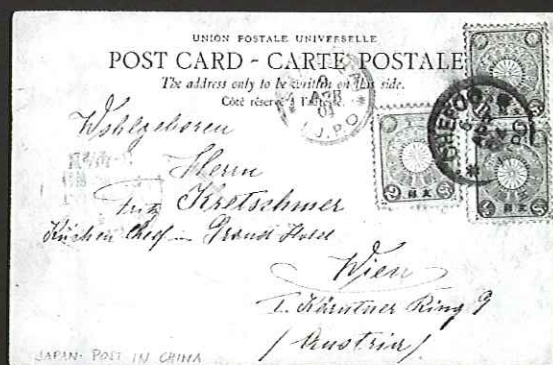 UNION POSTALE UNIVERSELLE
POST CARD - CARTE POSTALE
The address only to be written on this side.
Côté réservé à l'adresse.
APR 01
I.J.P.O
CHEFOO
Wohlgeboren
Herrn
Fritz Kretschmer
Küchen Chef - Grand Hotel
Wien
I. Kärntner Ring 9
/ Austria /
JAPAN. POST IN CHINA